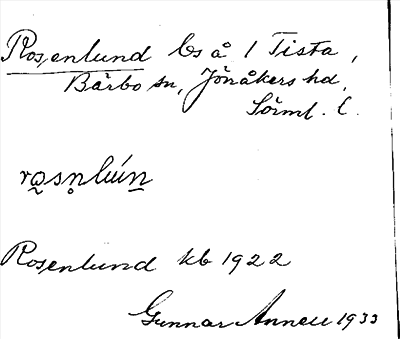 Rosenlund ls å 1 Tista,
Bärbo sn, Jönåkers hd,
Sörml. l.
ro̰sn̥lúńn̲
Rosenlund kb 1922
Gunnar Annell 1933